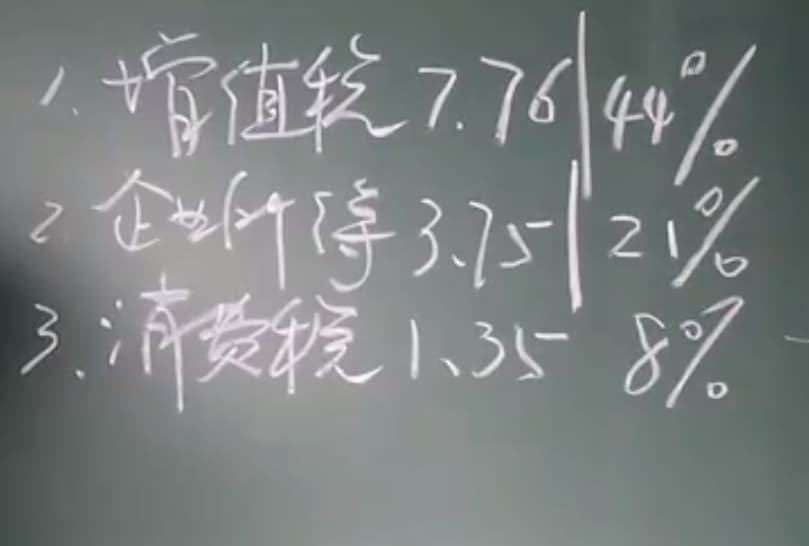 1. 增值税 7.76 | 44%
2. 企业所得 3.75 | 21%
3. 消费税 1.35 8%